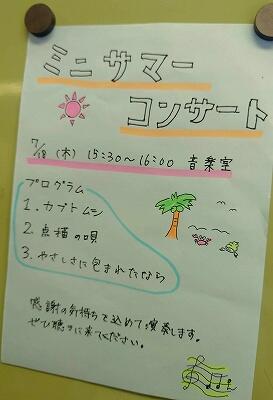 ミニサマー
コンサート
7/18 (木) 15:30〜16:00 音楽室
プログラム
1. カブトムシ
2. 点描の唄
3. やさしさに包まれたなら
感謝の気持ちを込めて演奏します。
ぜひ聴きに来てください。